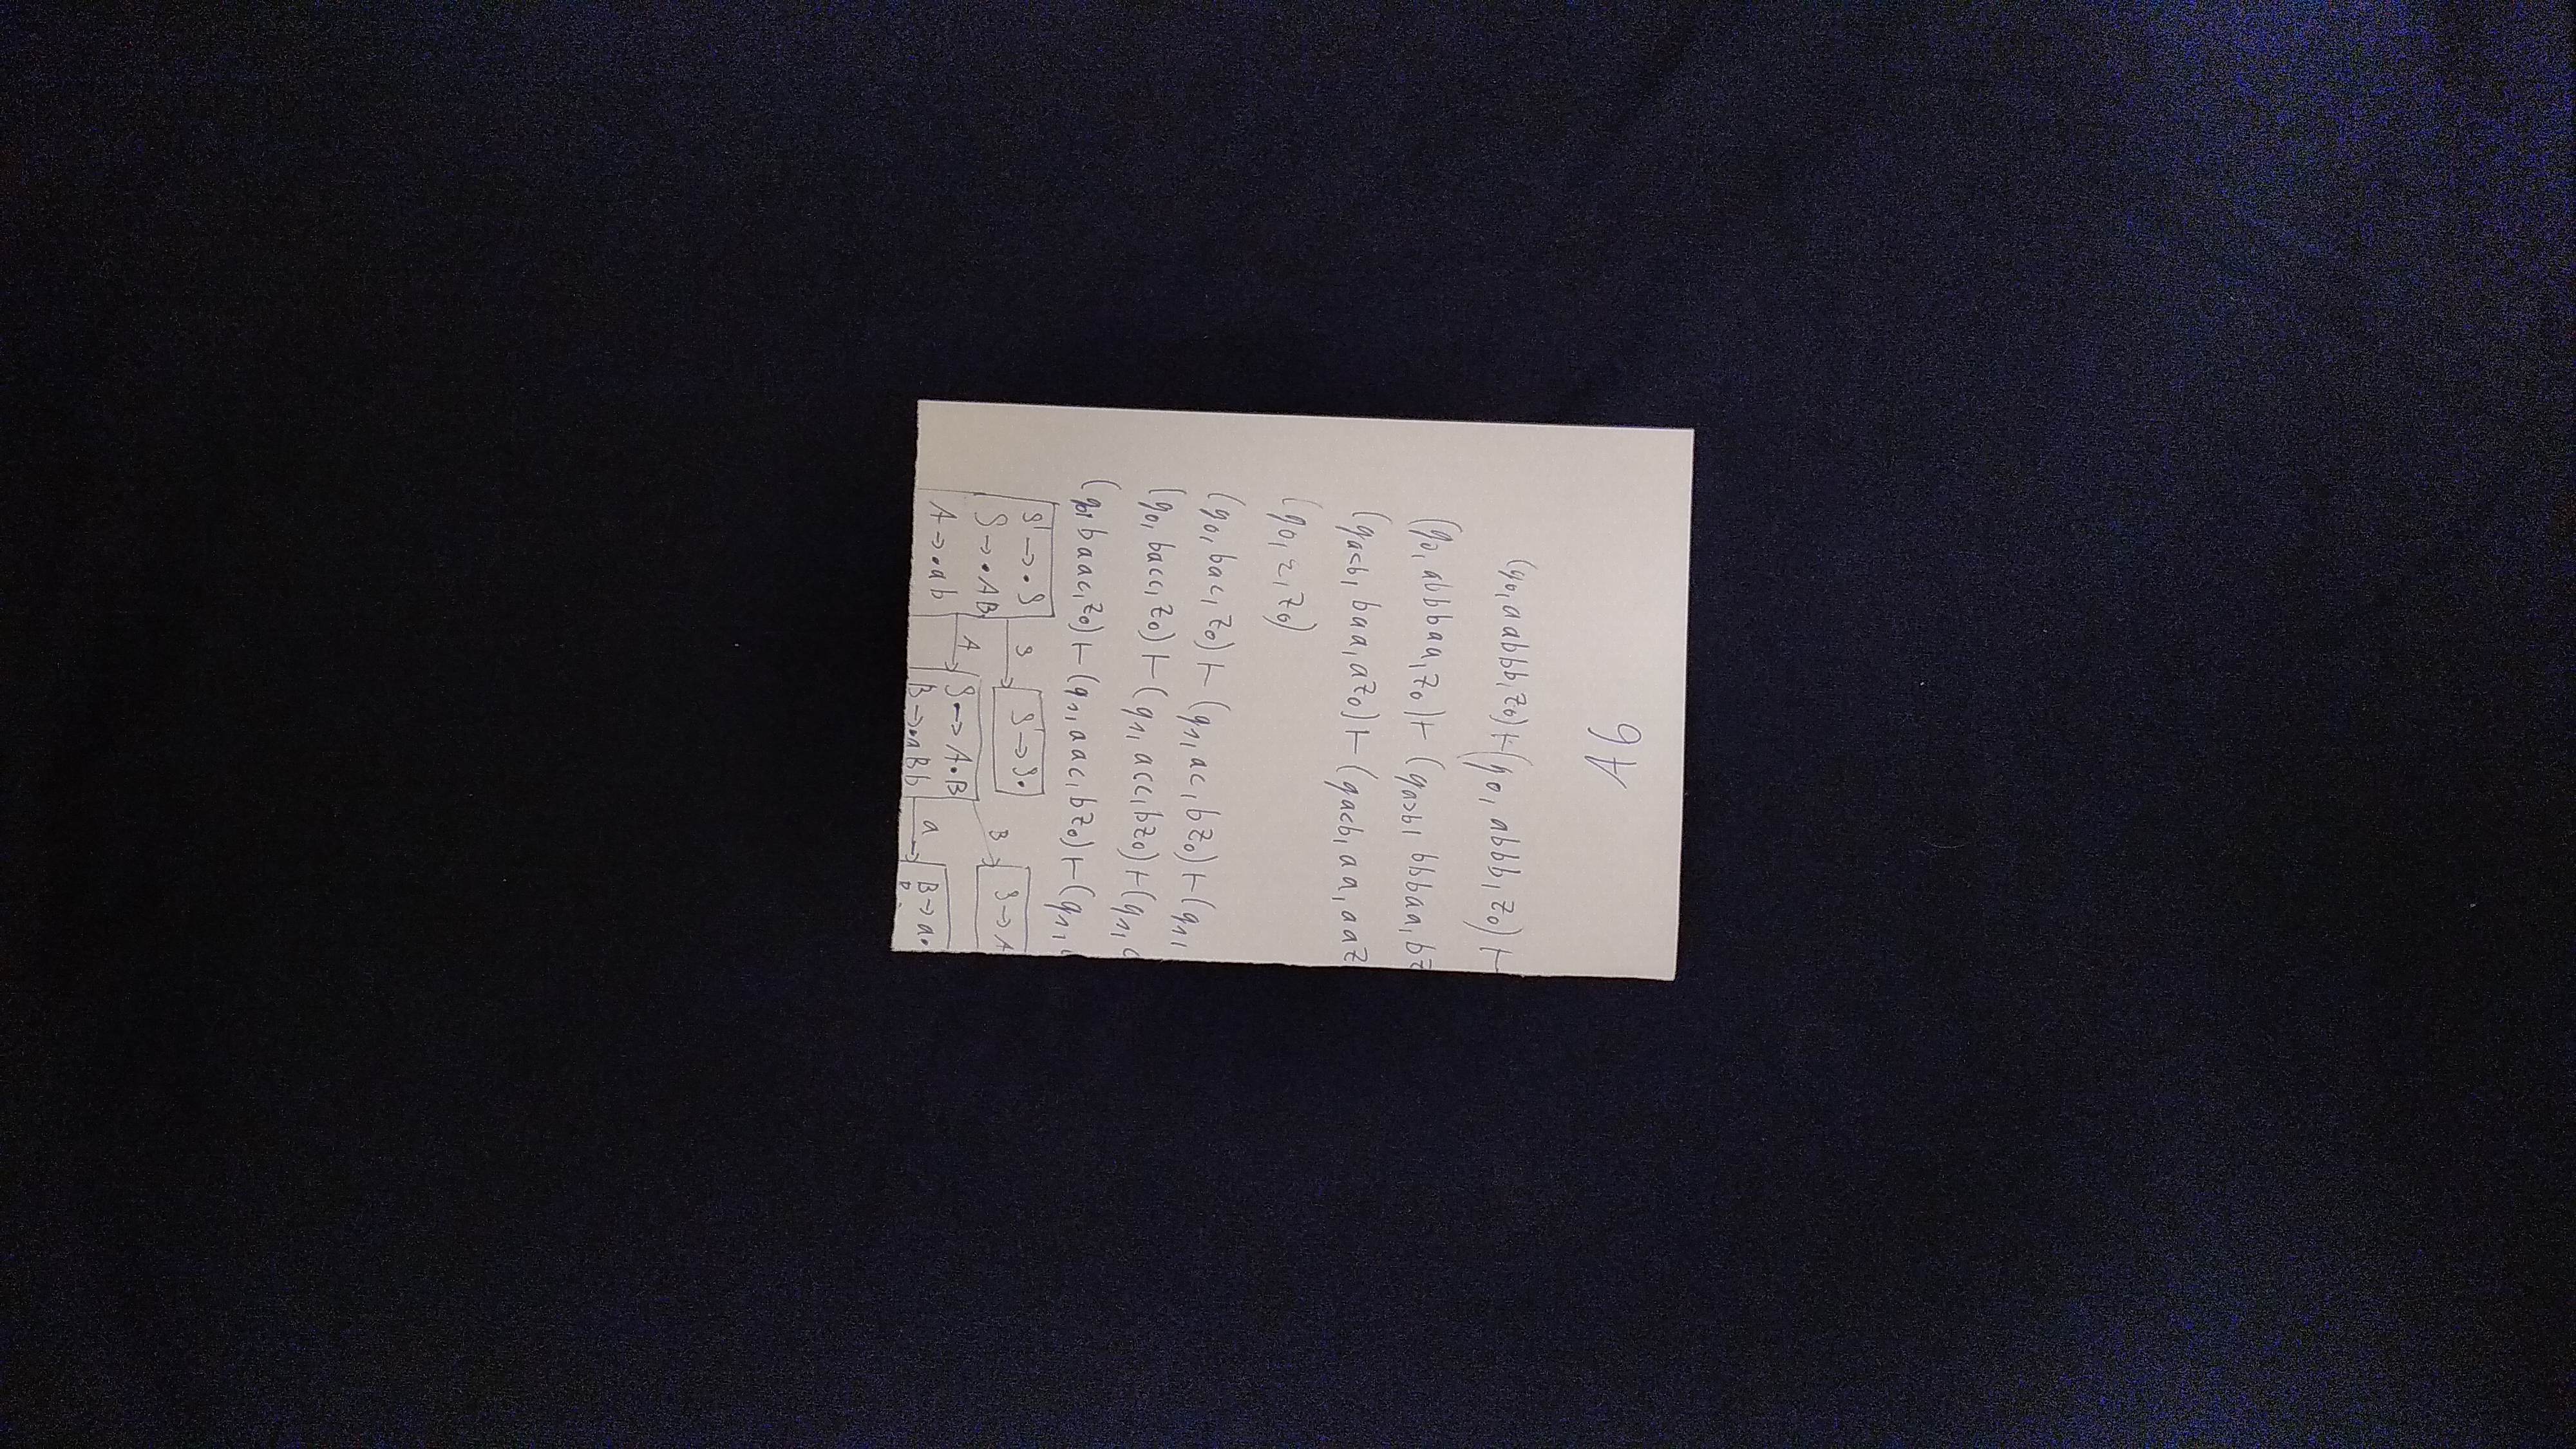 A6
(q0, aabbb, z0) ⊢ (q0, abbb, z0) ⊢
(q0, abbbaa, z0) ⊢ (qa>b, bbbaa, bz
(qa<b, baa, az0) ⊢ (qa<b, aa, aaz
(q0, ε, z0)
(q0, bac, z0) ⊢ (q1, ac, bz0) ⊢ (q1,
(q0, bacc, z0) ⊢ (q1, acc, bz0) ⊢ (q1, c
(q0, baac, z0) ⊢ (q1, aac, bz0) ⊢ (q1,
S' → •S S S' → S• B S → A
S → •AB
A → •ab A S → A•B a B → a•
B → •aBb